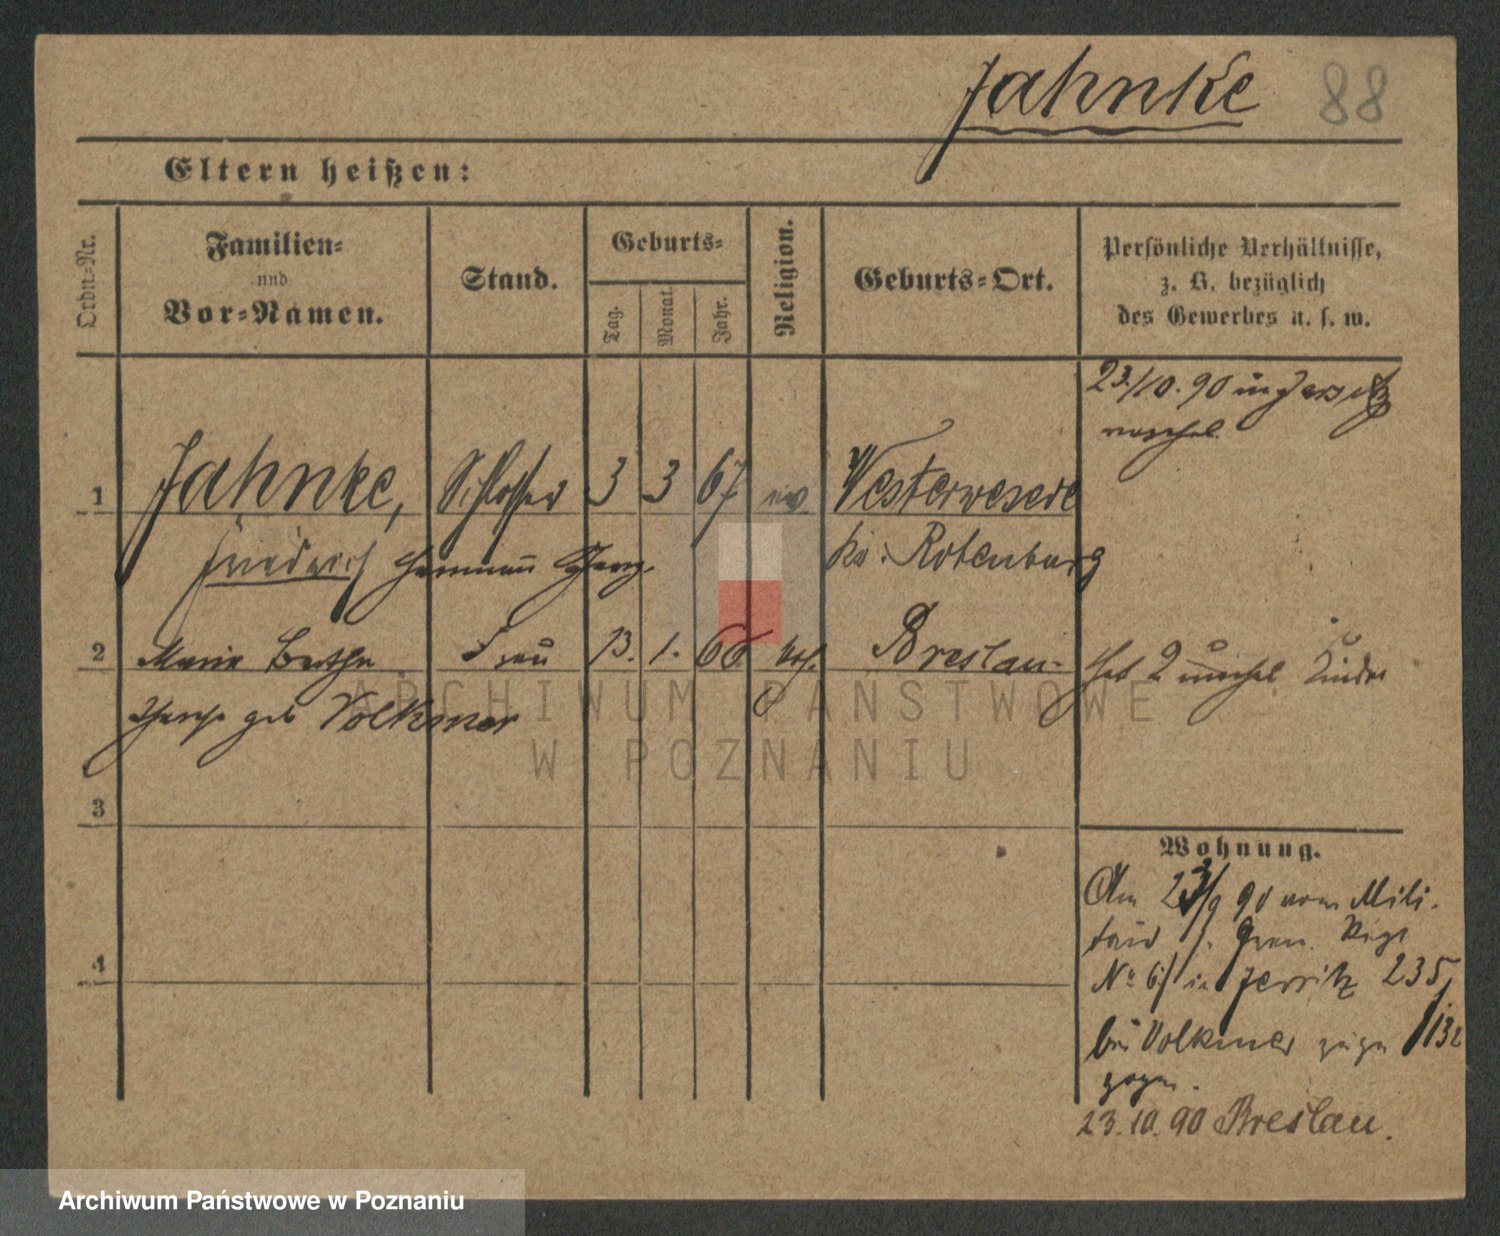 Jahnke 88
Eltern heißen:
Ordn=Nr.
Familien=
und
Vor=Namen.
Stand.
Geburts=
Tag.
Monat.
Jahr.
Religion.
Geburts=Ort.
Persönliche Verhältnisse,
z. B. bezüglich
des Gewerbes u. s. w.
23./10. 90 in Jersitz
1 Jahnke, Schlosser 3 3 67 ev Westerwesede
Friedrich Hermann Kr. Rotenburg
2 Marie Bertha Frau 13. 1. 66 Breslau
hat 2 unehel Kinder
geb Volkmer
3
4
Wohnung.
Am 23/9 90 vom Mili-
tair Gren. Regt
No 6 in Jersitz 235
bei Volkmer zuge 132
zogen.
23.10.90 Breslau.
ARCHIWUM PAŃSTWOWE
W POZNANIU
Archiwum Państwowe w Poznaniu